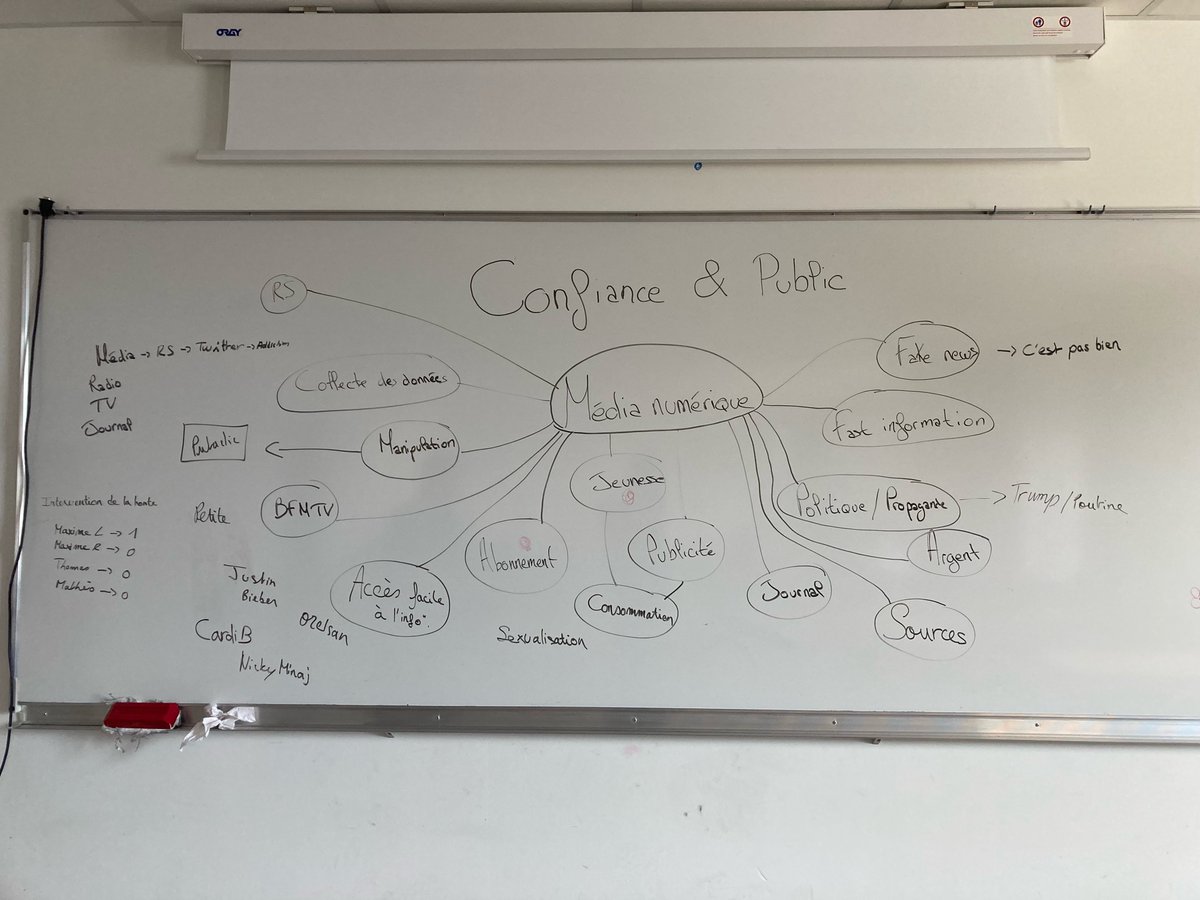 ORAY
Confiance & Public
RS
Média -> RS -> Twitther -> Addiction
Radio
TV
Journal
Collecte des données
Média numérique
Fake news -> C'est pas bien
Fast information
Manipulation
Jeunesse
BFMTV
Petite
Politique/Propagante -> Trump/Poutine
Intervention de la honte
Maxime L -> 1
Maxime R -> 0
Thomas -> 0
Mathéo -> 0
Abonnement
Publicité
Argent
Justin
Bieber
Accès facile
à l'info".
Consommation
Journal
Sources
Orelsan
Cardi B
Nicky Minaj
Sexualisation